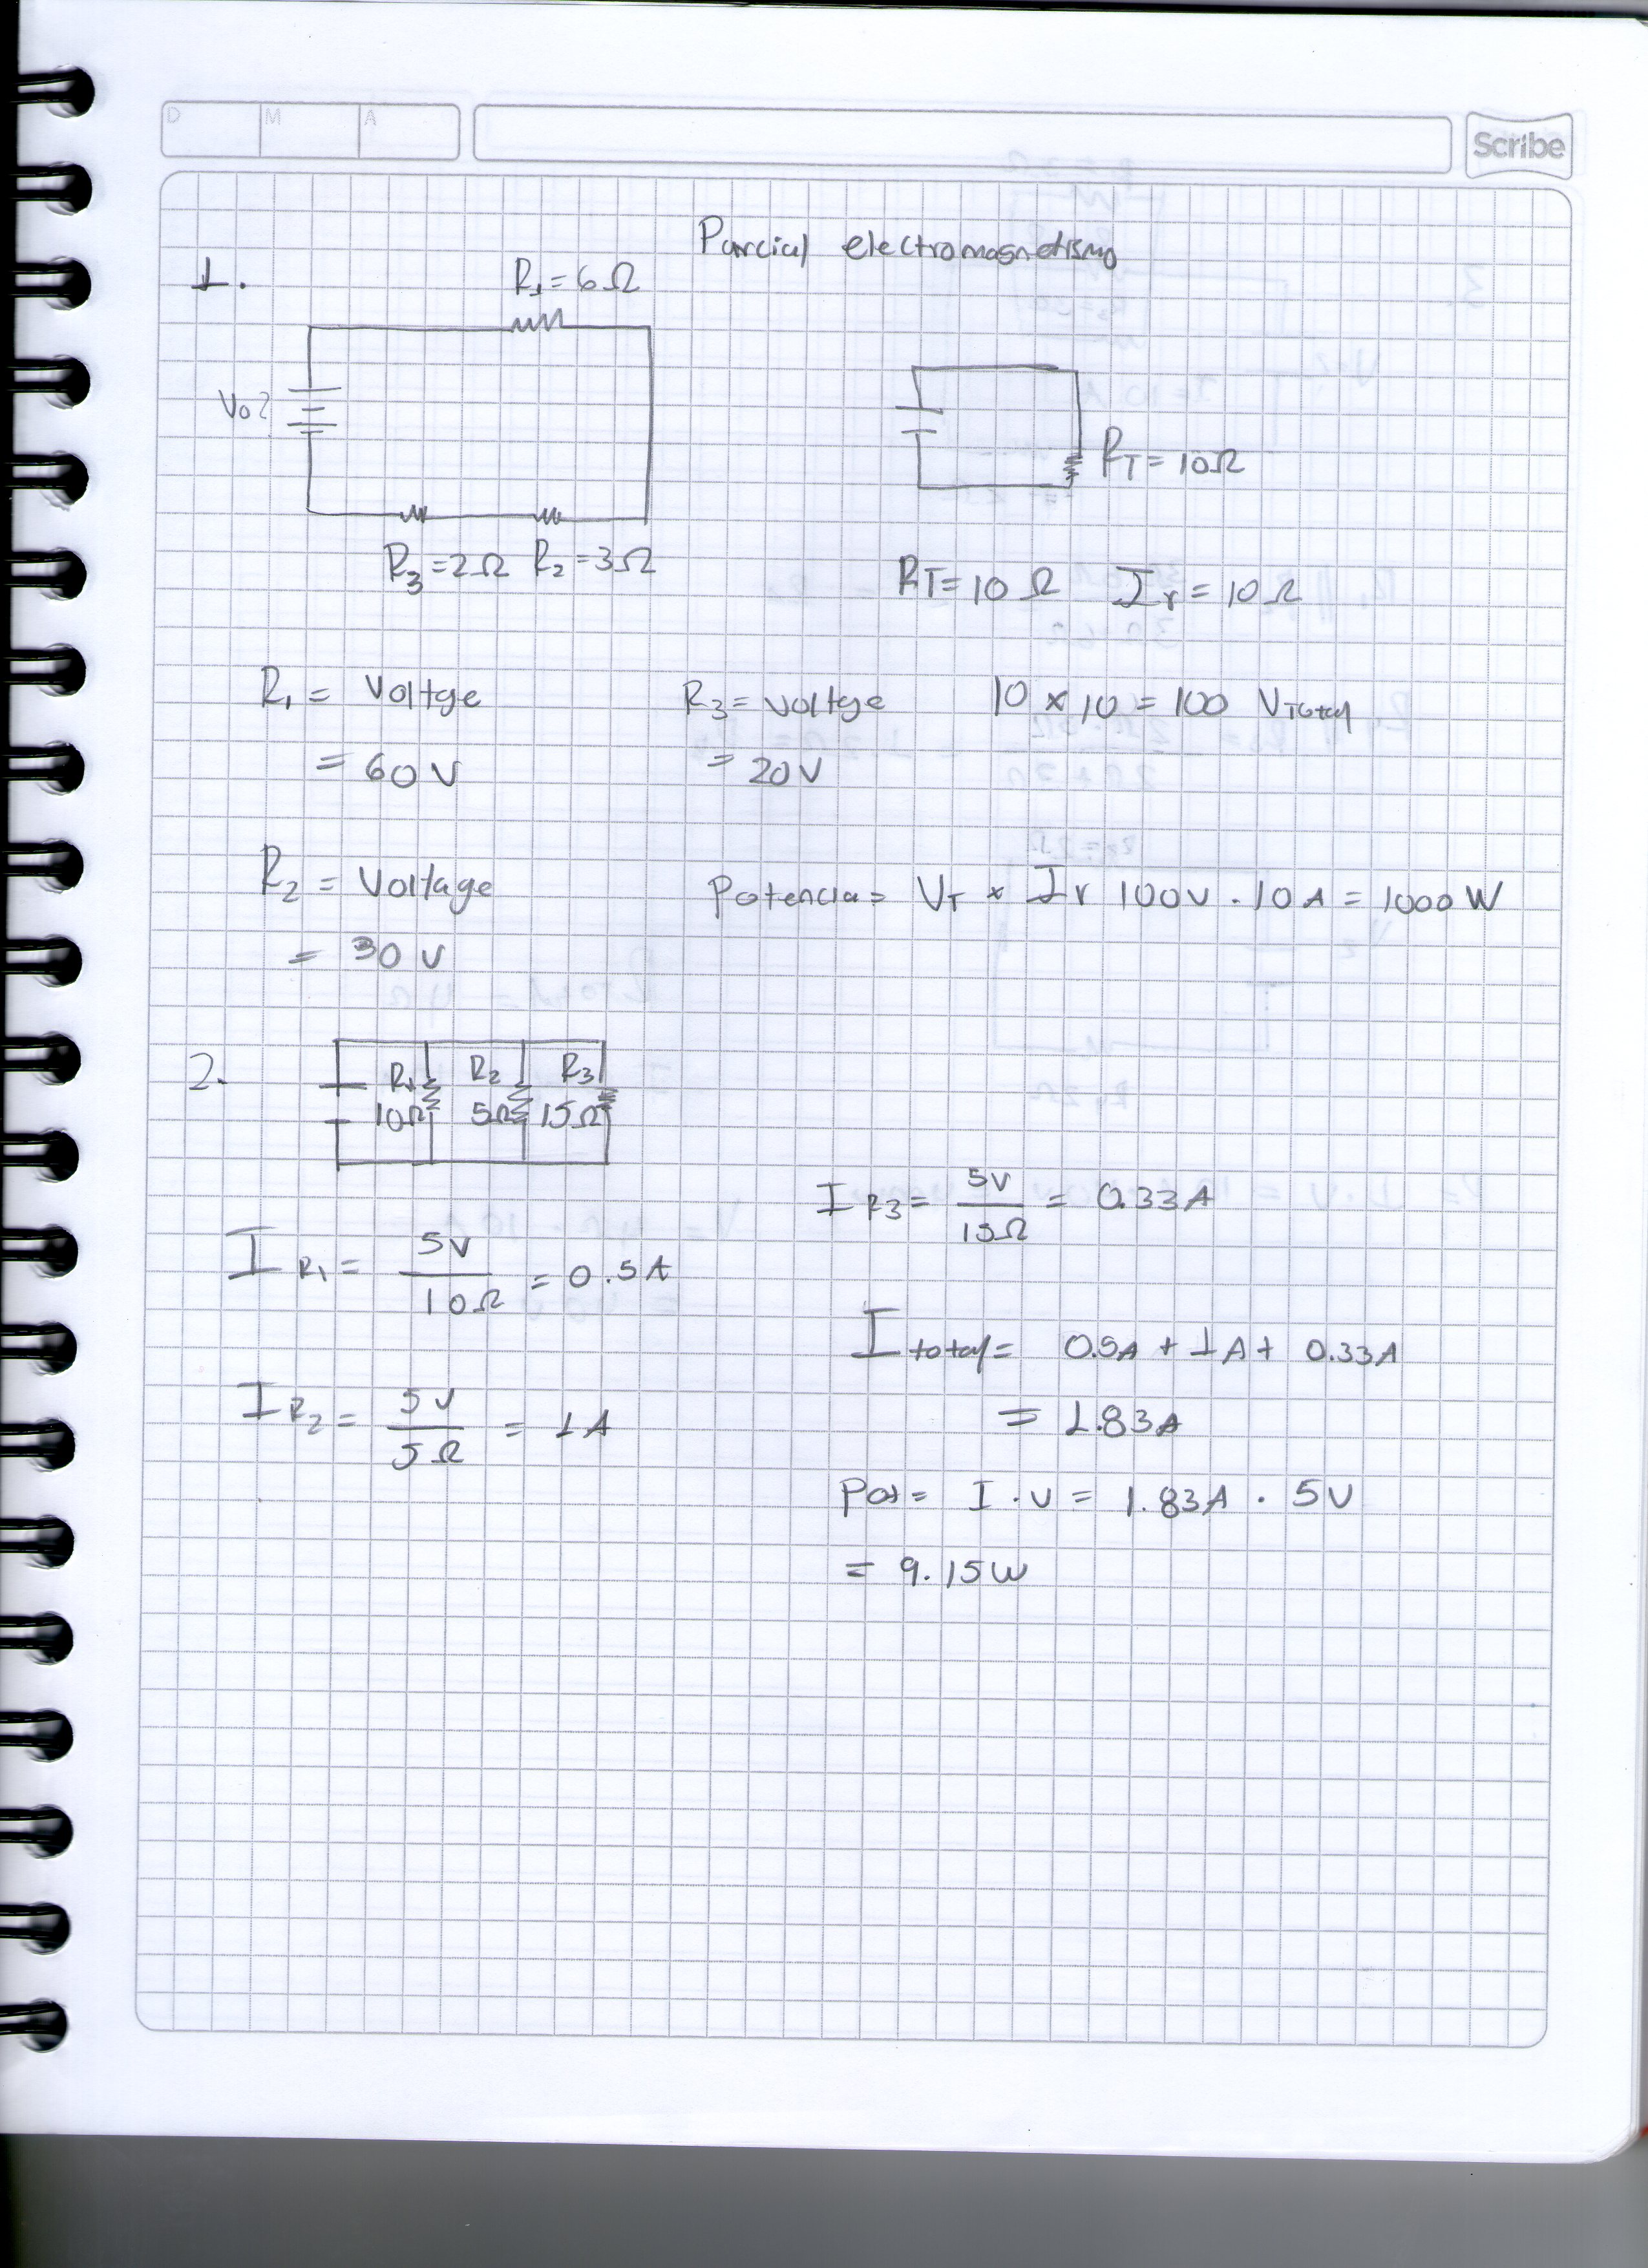 D M A
Scribe
Parcial electromagnetismo
1.
R₁=6Ω
Vo?
R₃=2Ω R₂=3Ω
R_T=10Ω
RT=10Ω I_r=10Ω
R₁= Voltge
= 60V
R₃= voltge
= 20V
10 × 10 = 100 V_Total
R₂= Voltage
= 30 V
Potencia= V_T × I_r 100V . 10A = 1000 W
2.
R₁ R₂ R₃
10Ω 5Ω 15Ω
I_R₁ = 5V / 10Ω = 0.5A
I_R₂ = 5V / 5Ω = 1A
I_R₃ = 5V / 15Ω = 0.33A
I_total = 0.5A + 1A + 0.33A
= 1.83A
Pot= I . V = 1.83A . 5V
= 9.15W